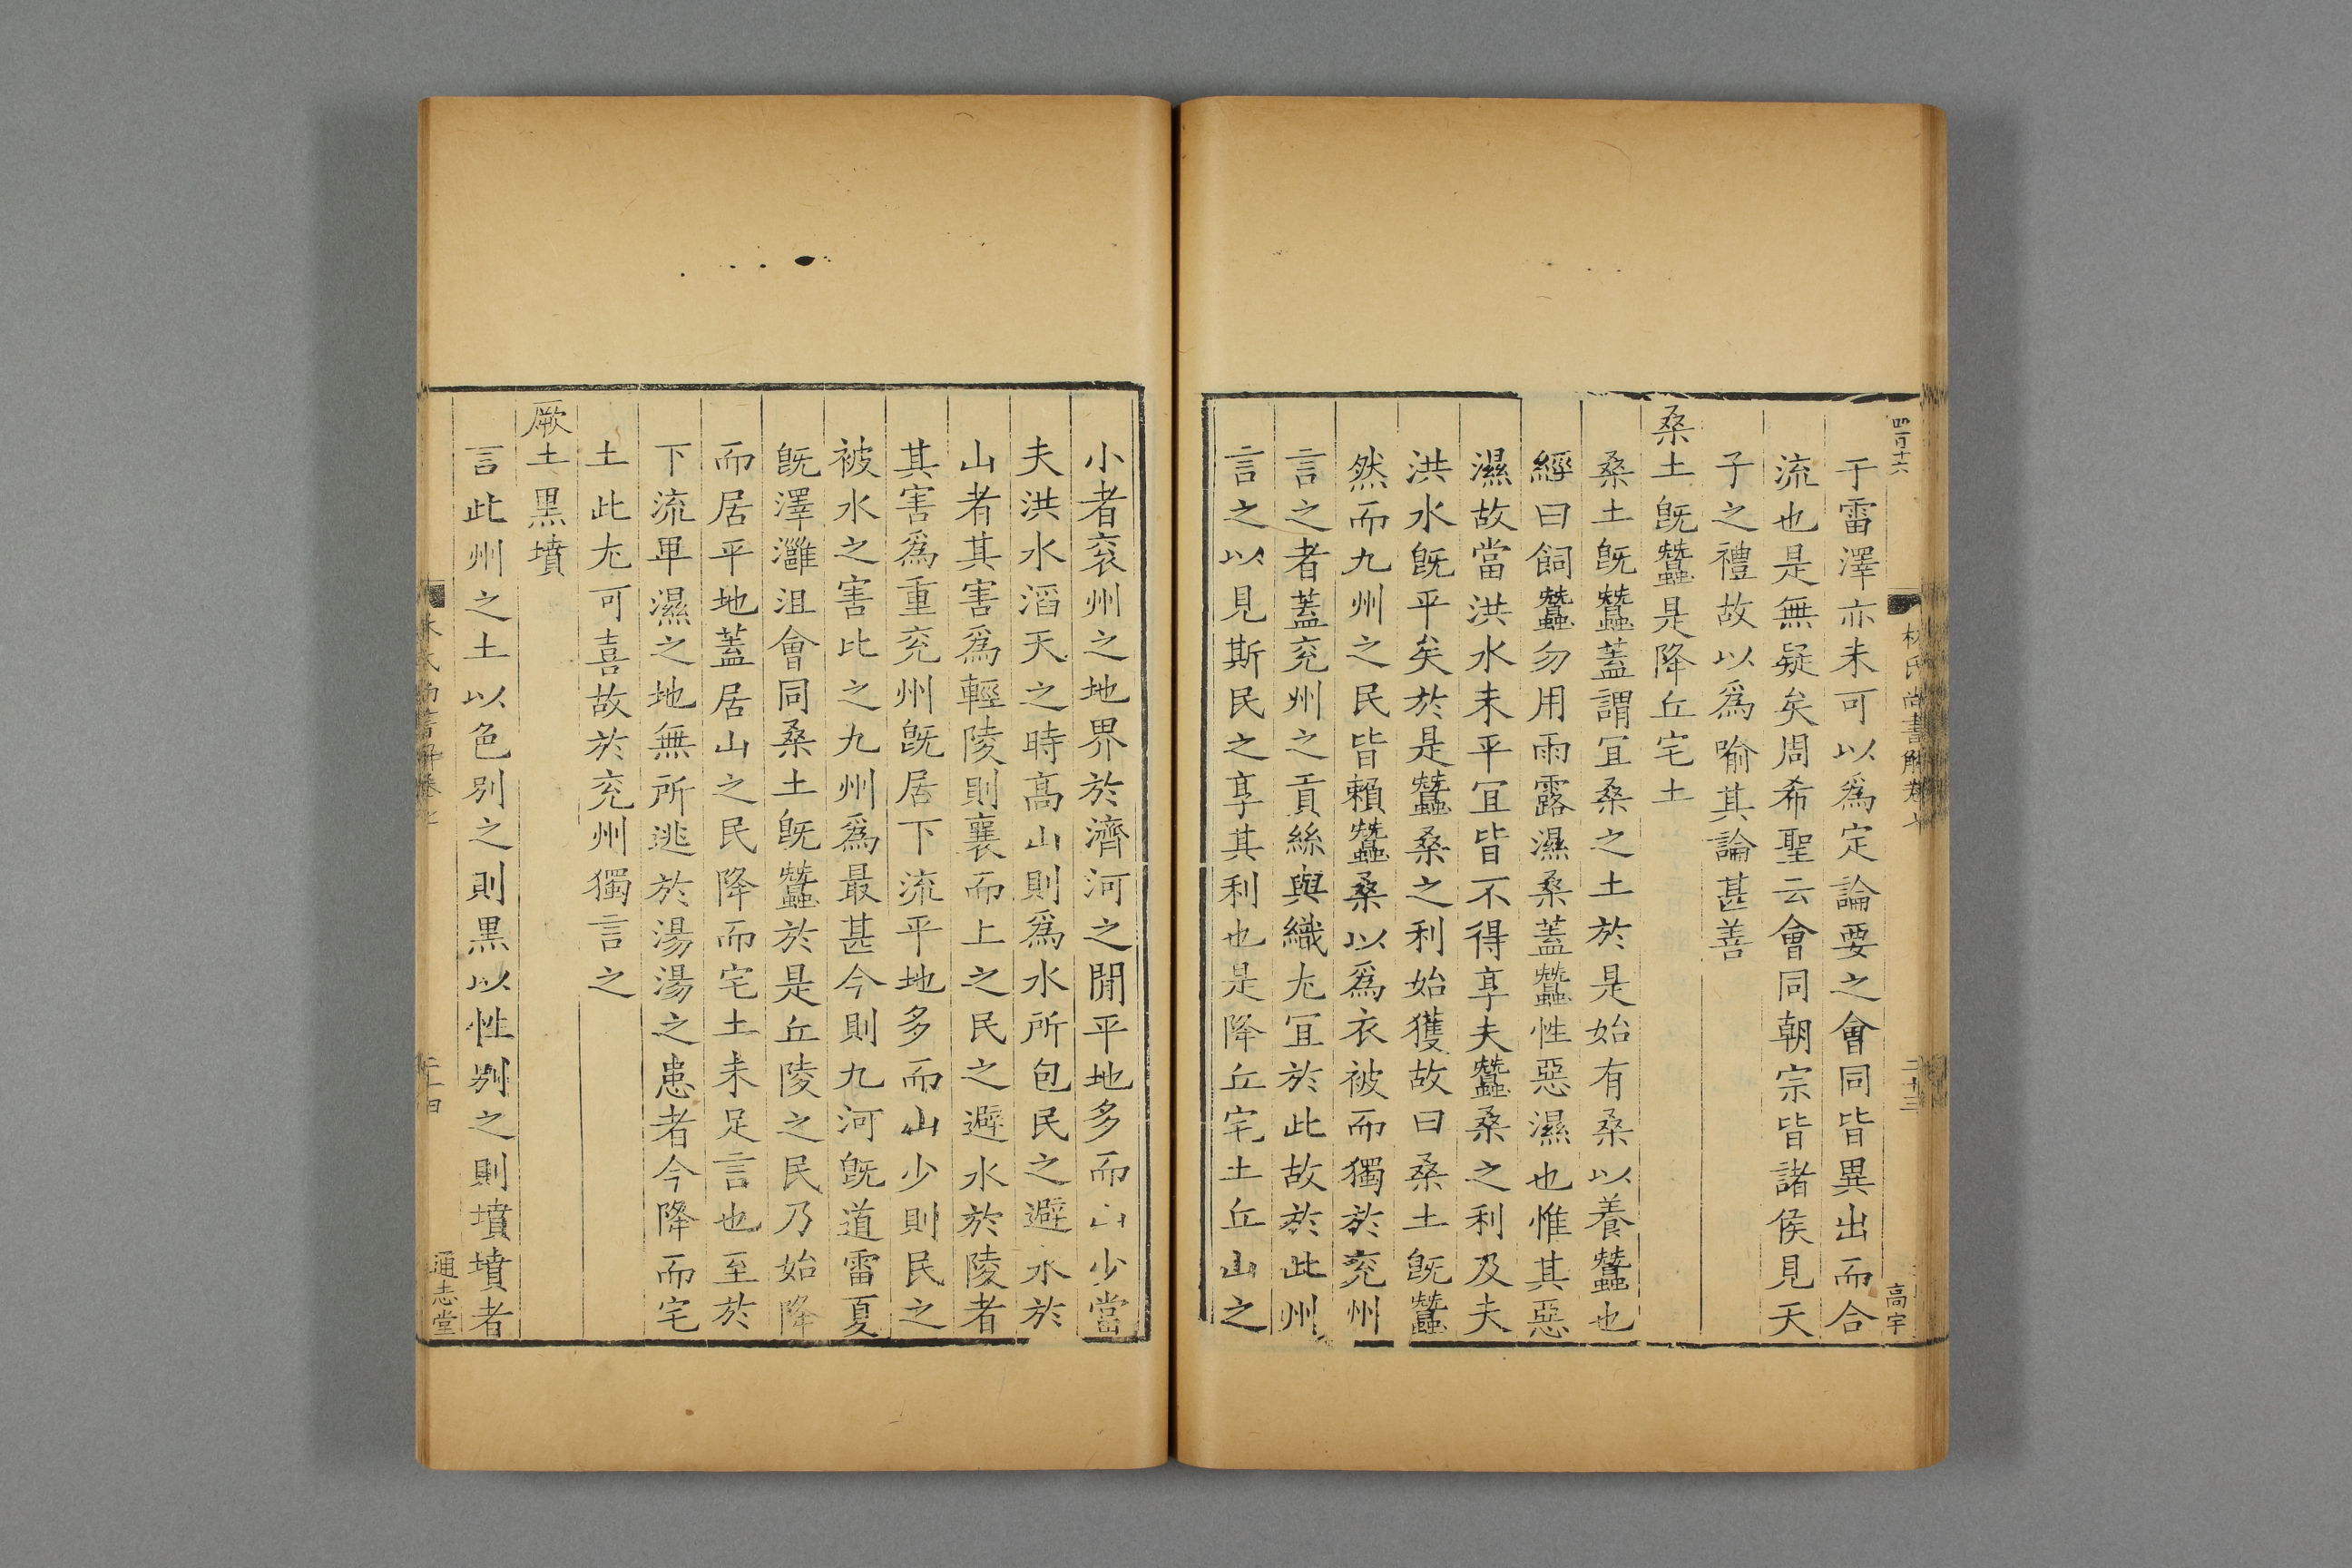 四百十六
林氏尚書解卷七
二十三
高宇
于雷澤亦未可以爲定論要之會同皆異出而合
流也是無疑矣周希聖云會同朝宗皆諸侯見天
子之禮故以爲喻其論甚善
桑土旣蠶是降丘宅土
桑土旣蠶蓋謂宜桑之土於是始有桑以養蠶也
經曰飼蠶勿用雨露濕桑蓋蠶性惡濕也惟其惡
濕故當洪水未平宜皆不得享夫蠶桑之利及夫
洪水旣平矣於是蠶桑之利始獲故曰桑土旣蠶
然而九州之民皆賴蠶桑以爲衣被而獨於兖州
言之者蓋兖州之貢絲與織尤宜於此故於此州
言之以見斯民之享其利也是降丘宅土丘山之
小者兖州之地界於濟河之閒平地多而山少當
夫洪水滔天之時高山則爲水所包民之避水於
山者其害爲輕陵則襄而上之民之避水於陵者
其害爲重兖州旣居下流平地多而山少則民之
被水之害比之九州爲最甚今則九河旣道雷夏
旣澤灉沮會同桑土旣蠶於是丘陵之民乃始降
而居平地蓋居山之民降而宅土未足言也至於
下流卑濕之地無所逃於湯湯之患者今降而宅
土此尤可喜故於兖州獨言之
厥土黑墳
言此州之土以色别之則黑以性别之則墳墳者
林氏尚書解卷七
二十四
通志堂